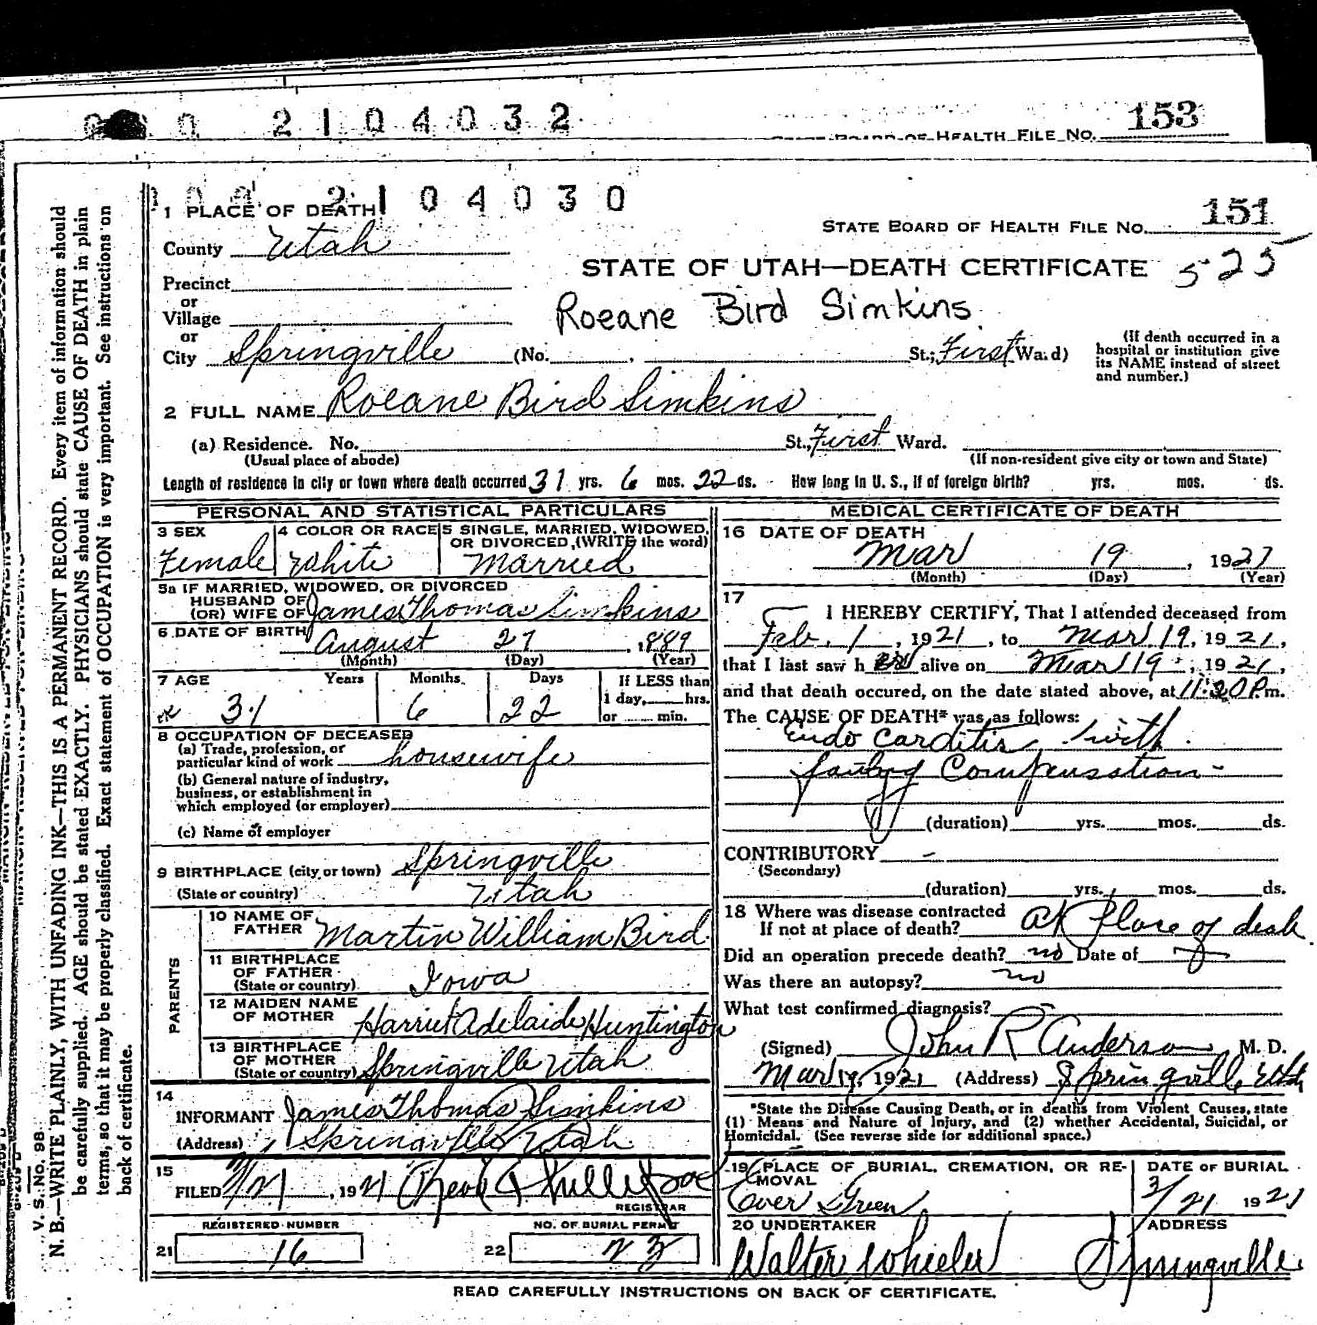 2104032
STATE BOARD OF HEALTH FILE NO. 153
2104030
1 PLACE OF DEATH
STATE BOARD OF HEALTH FILE NO. 151
County Utah
STATE OF UTAH—DEATH CERTIFICATE 525
Precinct
or
Village
Roeane Bird Simkins
or
City Springville (No. , St.; First Ward)
(If death occurred in a
hospital or institution give
its NAME instead of street
and number.)
2 FULL NAME Roeane Bird Simkins
(a) Residence. No. St., First Ward.
(Usual place of abode) (If non-resident give city or town and State)
Length of residence in city or town where death occurred 31 yrs. 6 mos. 22 ds. How long in U. S., if of foreign birth? yrs. mos. ds.
PERSONAL AND STATISTICAL PARTICULARS
3 SEX
Female
4 COLOR OR RACE
White
5 SINGLE, MARRIED, WIDOWED,
OR DIVORCED, (WRITE the word)
Married
5a IF MARRIED, WIDOWED, OR DIVORCED
HUSBAND OF
(OR) WIFE OF James Thomas Simkins
6 DATE OF BIRTH August 27, 1889
(Month) (Day) (Year)
7 AGE Years Months Days If LESS than
1 day, hrs.
31 6 22 or min.
8 OCCUPATION OF DECEASED
(a) Trade, profession, or
particular kind of work housewife
(b) General nature of industry,
business, or establishment in
which employed (or employer)
(c) Name of employer
9 BIRTHPLACE (city or town) Springville
(State or country) Utah
PARENTS
10 NAME OF
FATHER Martin William Bird
11 BIRTHPLACE
OF FATHER
(State or country) Iowa
12 MAIDEN NAME
OF MOTHER Harriet Adelaide Huntington
13 BIRTHPLACE
OF MOTHER
(State or country) Springville Utah
14
INFORMANT James Thomas Simkins
(Address) Springville Utah
15
FILED 3/21, 1921
REGISTRAR
REGISTERED NUMBER NO. OF BURIAL PERMIT
21 16 22 23
MEDICAL CERTIFICATE OF DEATH
16 DATE OF DEATH
Mar 19, 1921
(Month) (Day) (Year)
17
I HEREBY CERTIFY, That I attended deceased from
Feb. 1, 1921, to Mar 19, 1921,
that I last saw her alive on Mar 19, 1921,
and that death occured, on the date stated above, at 11:20 P.m.
The CAUSE OF DEATH* was as follows:
Endo carditis, with
faulty Compensation -
(duration) yrs. mos. ds.
CONTRIBUTORY -
(Secondary)
(duration) yrs. mos. ds.
18 Where was disease contracted
If not at place of death? at Place of death
Did an operation precede death? no Date of
Was there an autopsy? no
What test confirmed diagnosis?
(Signed) John R Anderson M. D.
Mar 19, 1921 (Address) Springville Utah
*State the Disease Causing Death, or in deaths from Violent Causes, state
(1) Means and Nature of Injury, and (2) whether Accidental, Suicidal, or
Homicidal. (See reverse side for additional space.)
19 PLACE OF BURIAL, CREMATION, OR RE-
MOVAL
Ever Green
DATE OF BURIAL
3/21 1921
20 UNDERTAKER
Walter Wheeler
ADDRESS
Springville
READ CAREFULLY INSTRUCTIONS ON BACK OF CERTIFICATE.
V. S. No. 98
N. B.—WRITE PLAINLY, WITH UNFADING INK—THIS IS A PERMANENT RECORD. Every item of information should
be carefully supplied. AGE should be stated EXACTLY. PHYSICIANS should state CAUSE OF DEATH in plain
terms, so that it may be properly classified. Exact statement of OCCUPATION is very important. See instructions on
back of certificate.